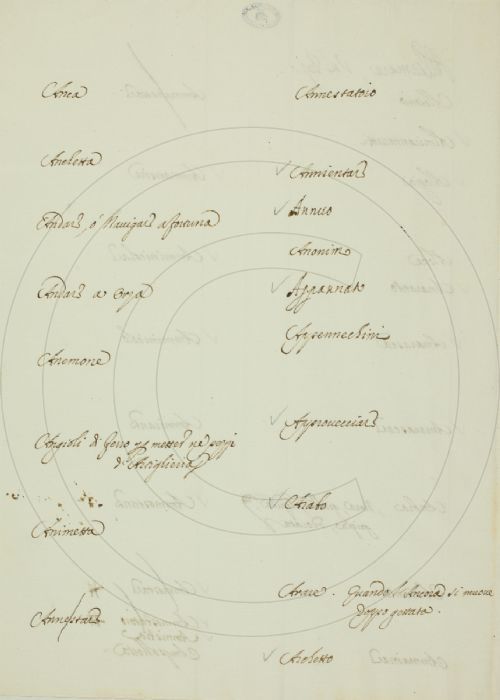 Anca
Ancletta
Andare, ò Nauigare a fortuna
Andare a Orza
Anemone
Angioli di ferro
d'Artiglieria
Animetta
Annestare
Annestatoio
✓ Annientare
✓ Annuo
Anonimo
✓ Appannato
Appennechini
✓ Approuecciare
✓ Arabo
Arare . Quando l'Ancora si muoue
doppo gettata .
✓ Arcletto